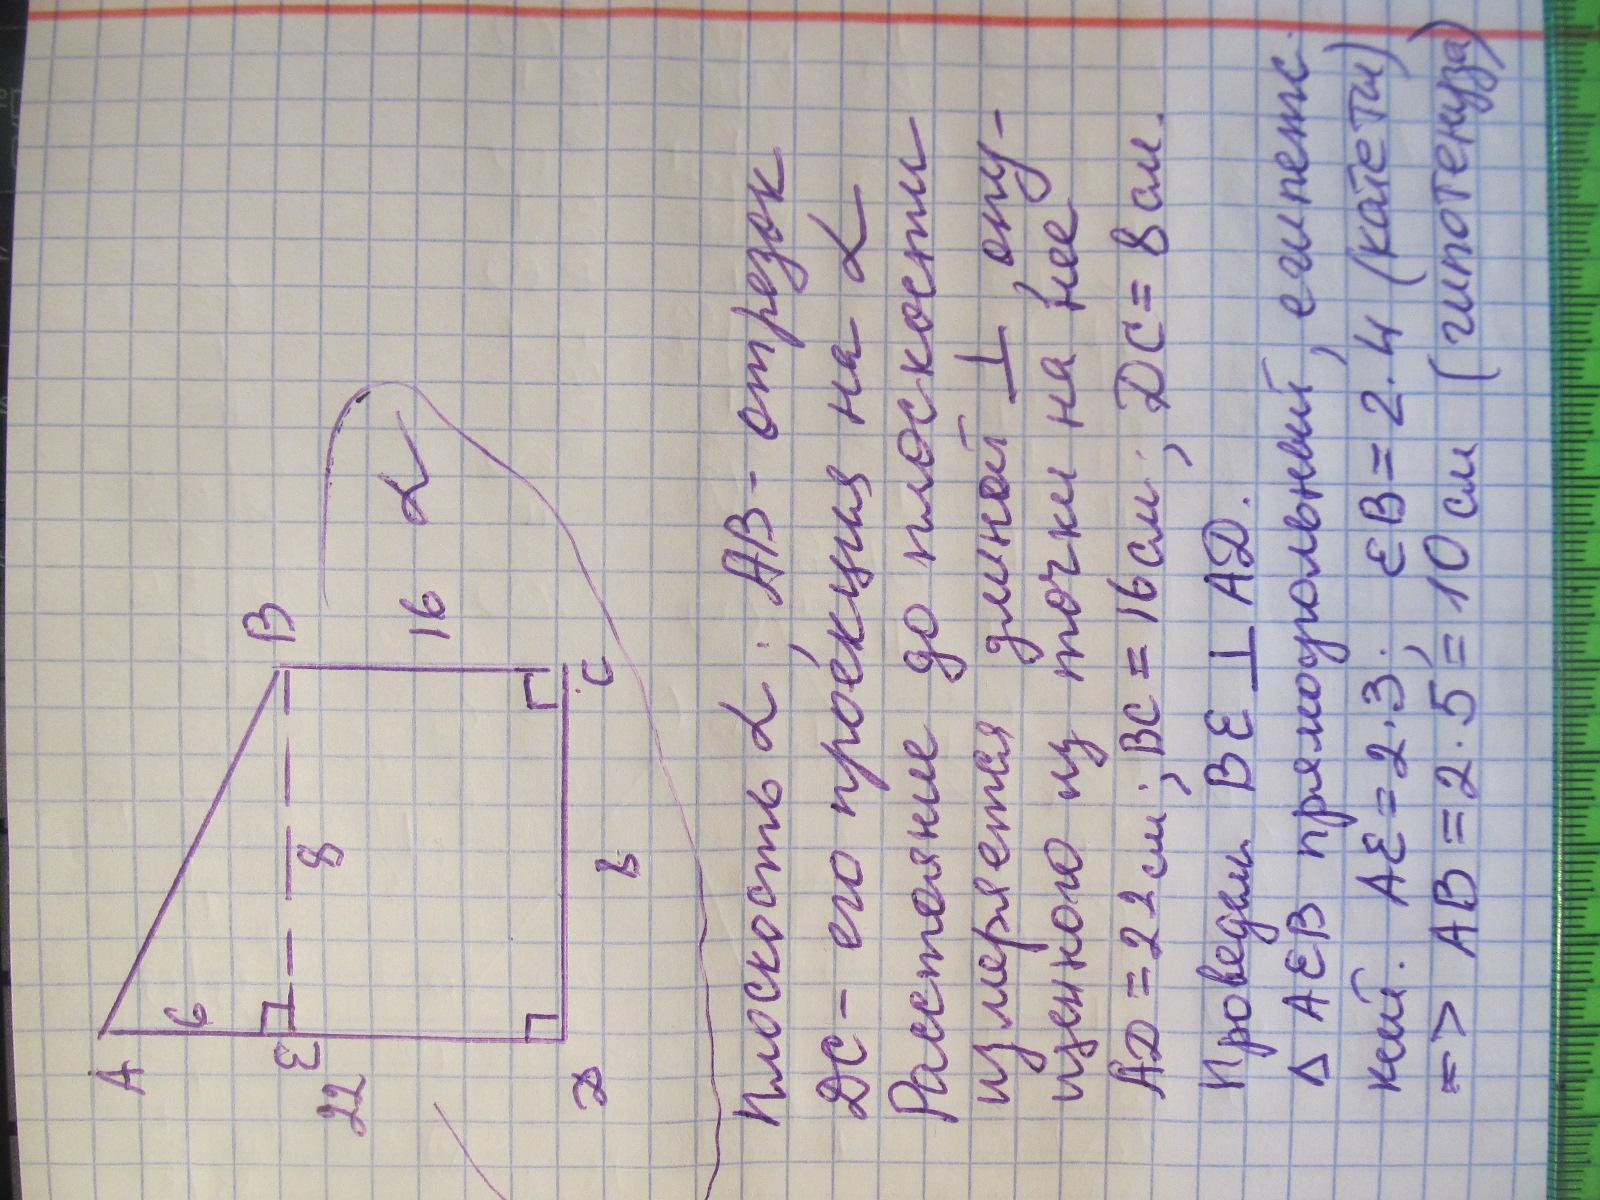 A
B
6
E
8
22
16
α
D
8
C
Плоскость α: AB - отрезок
DC - его проекция на α
Расстояние до плоскости
измеряется длиной ⊥ опу-
щенного из точки на нее
AD = 22 см; BC = 16 см; DC = 8 см.
Проведем BE ⊥ AD.
Δ AEB прямоугольный, египетс-
кий. AE = 2·3; EB = 2·4 (катеты)
=> AB = 2·5 = 10 см (гипотенуза)